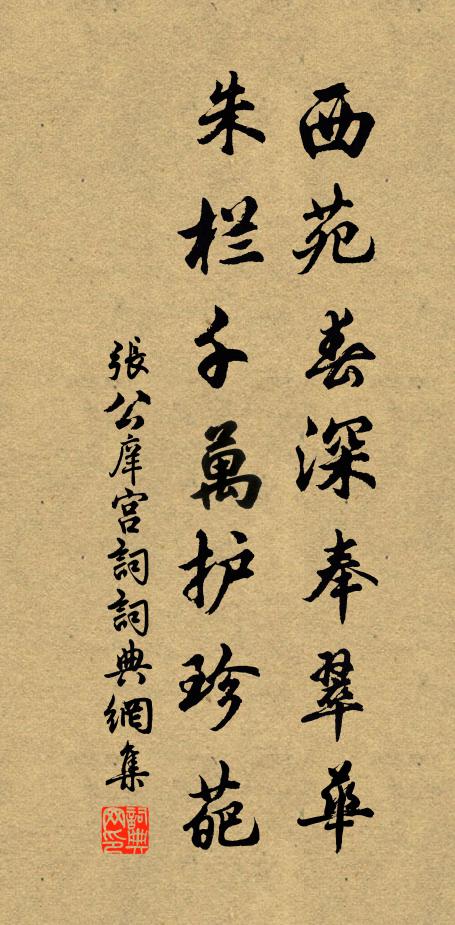 西苑春深奉翠華
朱栏千萬护珍葩
張公庠宫詞詞典網集
詞典网印